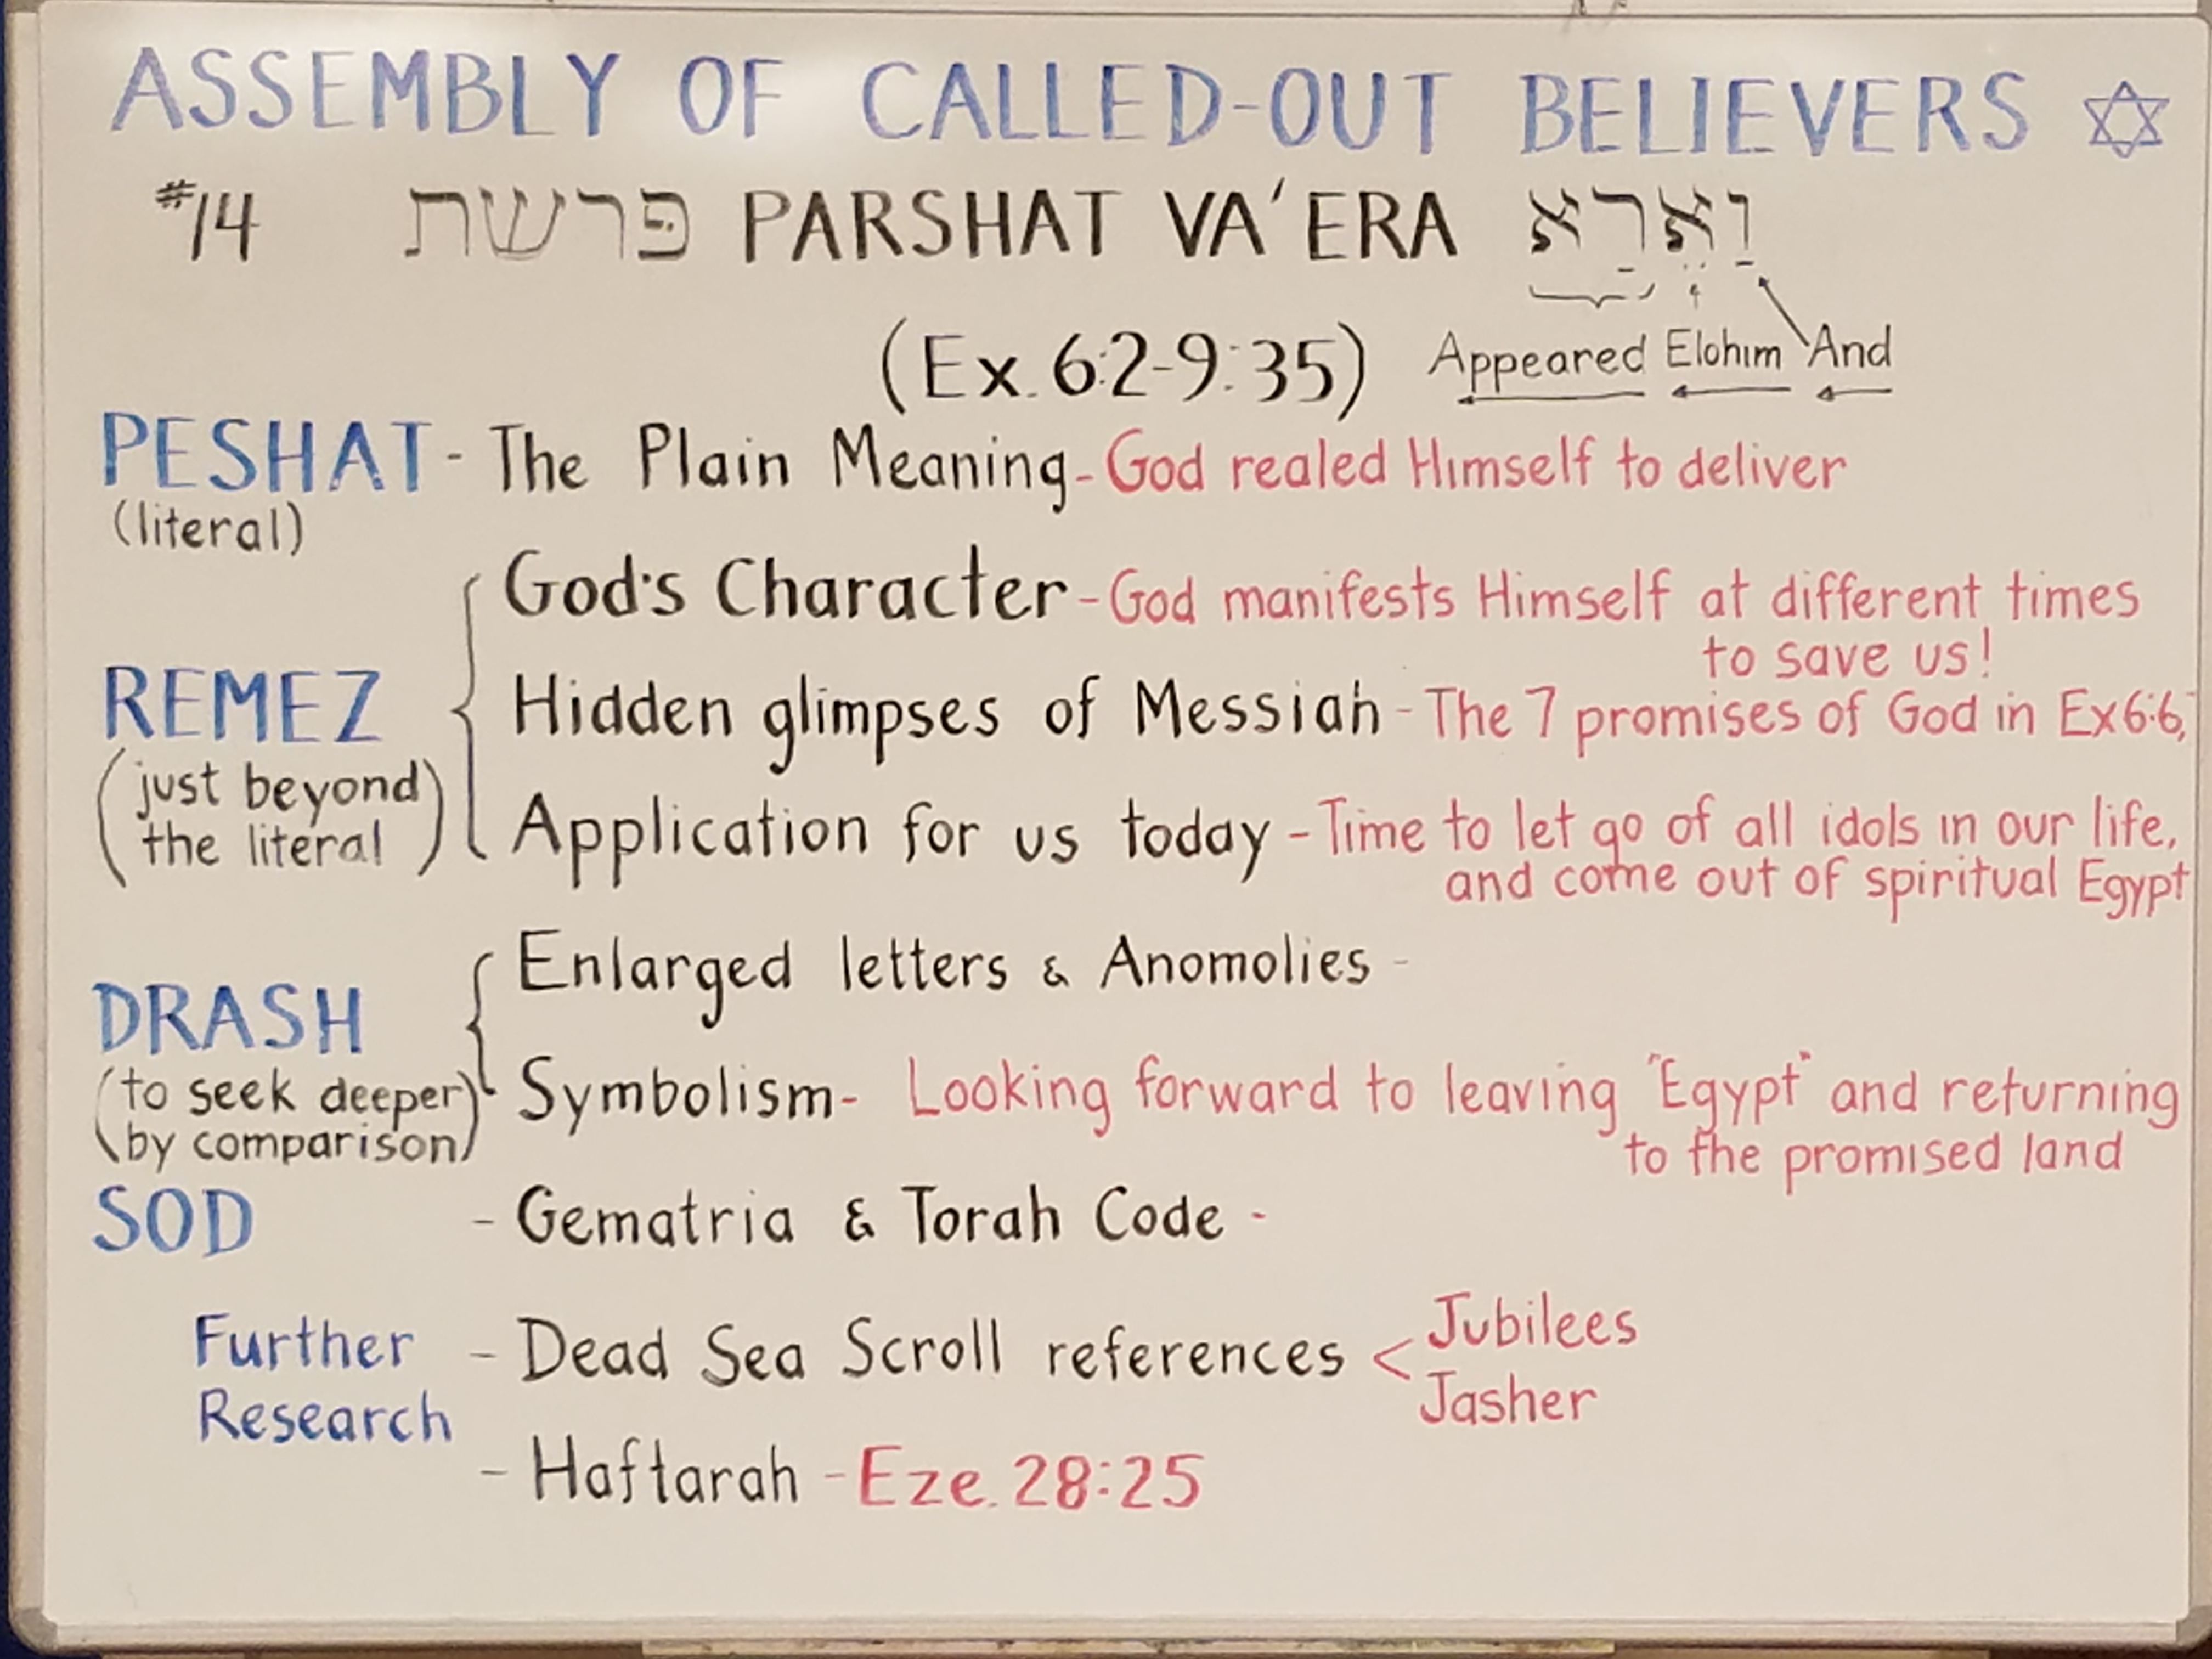 ASSEMBLY OF CALLED-OUT BELIEVERS ✡
#14 פרשת PARSHAT VA'ERA וַאֵרַא
(Ex. 6:2-9:35) Appeared Elohim And
PESHAT - The Plain Meaning - God realed Himself to deliver
(literal)
God's Character - God manifests Himself at different times
to save us!
REMEZ
Hidden glimpses of Messiah - The 7 promises of God in Ex 6:6,
(just beyond
the literal)
Application for us today - Time to let go of all idols in our life,
and come out of spiritual Egypt
Enlarged letters & Anomolies -
DRASH
(to seek deeper
by comparison)
Symbolism - Looking forward to leaving "Egypt" and returning
to the promised land
SOD - Gematria & Torah Code -
Further
Research
- Dead Sea Scroll references < Jubilees
Jasher
- Haftarah - Eze. 28:25